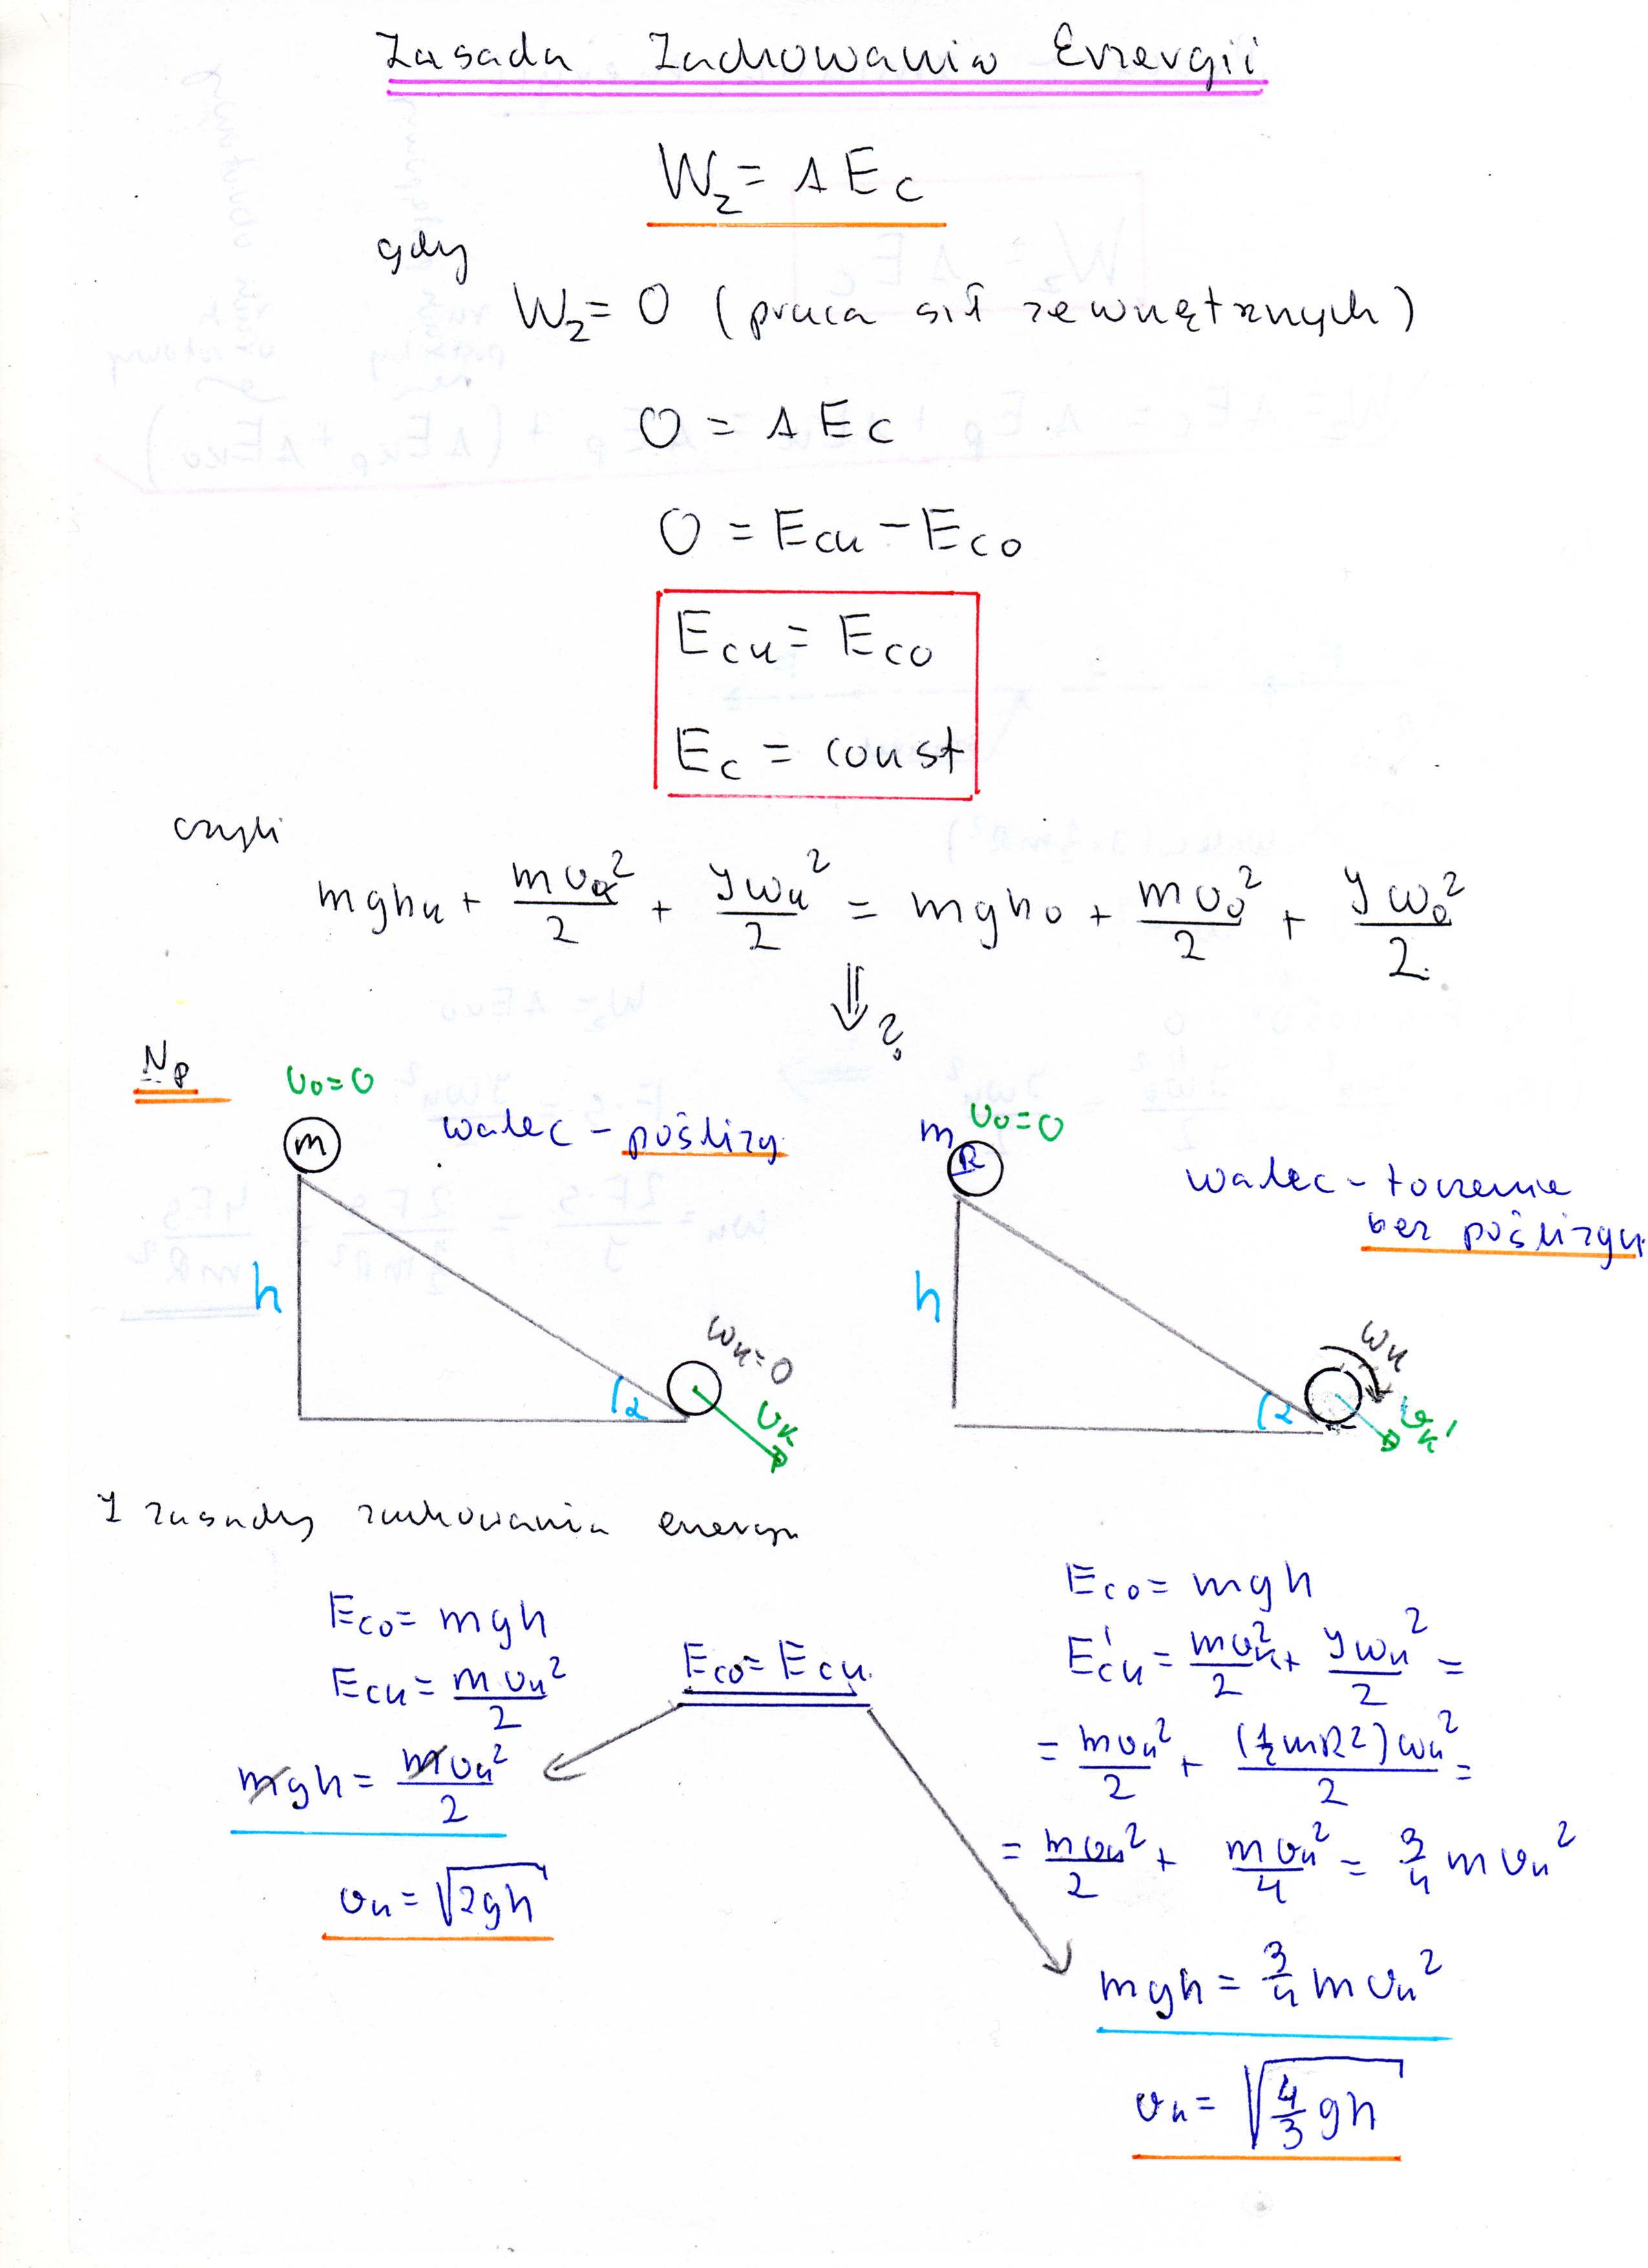 Zasada Zachowania Energii
W_z = ΔE_c
gdy
W_z = 0 (praca sił zewnętrznych)
0 = ΔE_c
0 = E_ck - E_co
E_ck = E_co
E_c = const
czyli
mgh_k + mv_k²/2 + Jω_k²/2 = mgh_0 + mv_0²/2 + Jω_0²/2
⇓ ?
Np
v_0 = 0
m
walec - poślizg
h
ω_k = 0
α
v_k
v_0 = 0
m
R
walec - toczenie
bez poślizgu
h
ω_k
α
v_k'
Z zasady zachowania energii
E_co = mgh
E_ck = mv_k²/2
mgh = mv_k²/2
v_k = √2gh
E_co = E_ck
E_co = mgh
E'_ck = mv_k²/2 + Jω_k²/2 =
= mv_k²/2 + (½mR²)ω_k²/2 =
= mv_k²/2 + mv_k²/4 = 3/4 mv_k²
mgh = 3/4 mv_k²
v_k = √4/3 gh